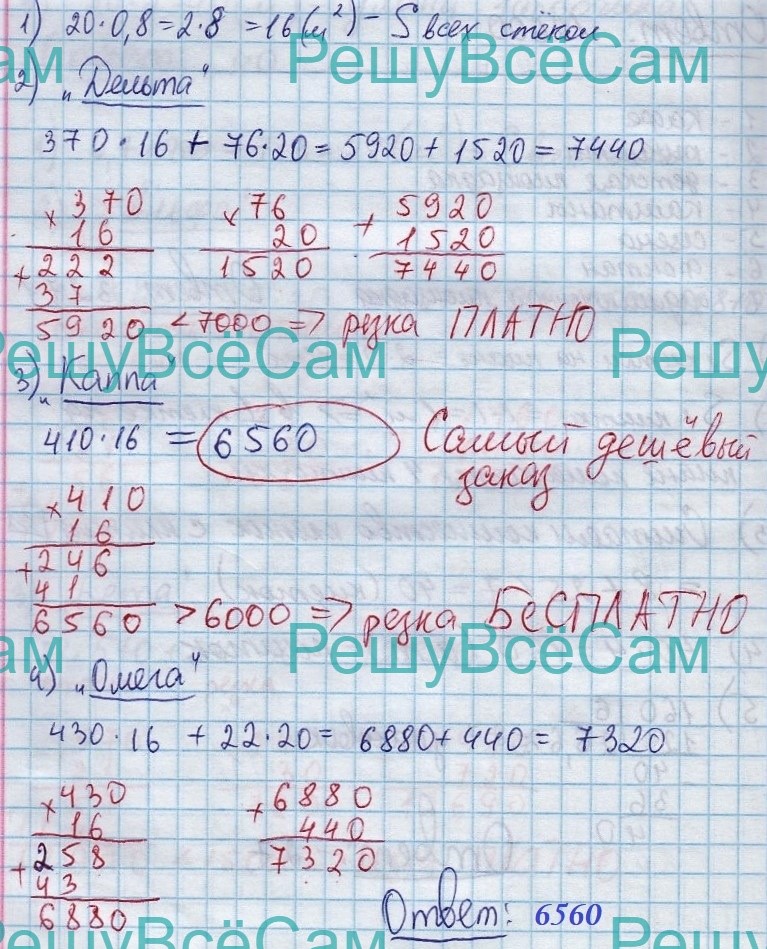 1) 20·0,8=2·8 =16(м²) – S всех стёкол
РешуВсёСам
2) „Дельта"
370·16 + 76·20 = 5920 + 1520 = 7440
× 370
16
+ 222
37
5920 < 7000 => резка ПЛАТНО
× 76
20
1520
+ 5920
1520
7440
РешуВсёСам
РешуВсёСам
3) „Каппа"
410·16 = 6560 Самый дешёвый
заказ
× 410
16
+ 246
41
6560 > 6000 => резка БЕСПЛАТНО
РешуВсёСам
4) „Омега"
430·16 + 22·20 = 6880 + 440 = 7320
× 430
16
+ 258
43
6880
+ 6880
440
7320
Ответ: 6560
РешуВсёСам